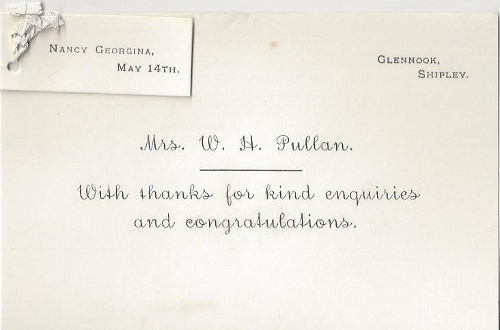 Nancy Georgina,
May 14th.
Glennook,
Shipley.
Mrs. W. H. Pullan.
With thanks for kind enquiries
and congratulations.